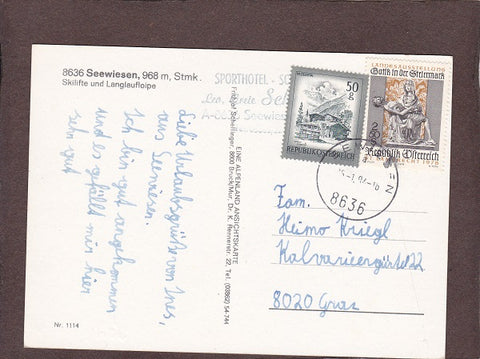 8636 Seewiesen, 968 m, Stmk.
Skilifte und Langlaufloipe
SPORTHOTEL - SC
Seewiesen
Liebe Urlaubsgrüße von Ines,
aus Seewiesen.
Ich bin gut angekommen
und es gefällt mir hier
sehr gut
EINE ALPENLAND ANSICHTSKARTE
Fridolf Schellinger, 8600 Bruck/Mur, Dr. K. Rennerstr. 22, Tel. (03862) 54-744
50
g
REPUBLIK ÖSTERREICH
LANDESAUSSTELLUNG
Gotik in der Steiermark
Republik Österreich
8636
Fam.
Heimo Kriegl
Kalvariengürtel 22
8020 Graz
Nr. 1114